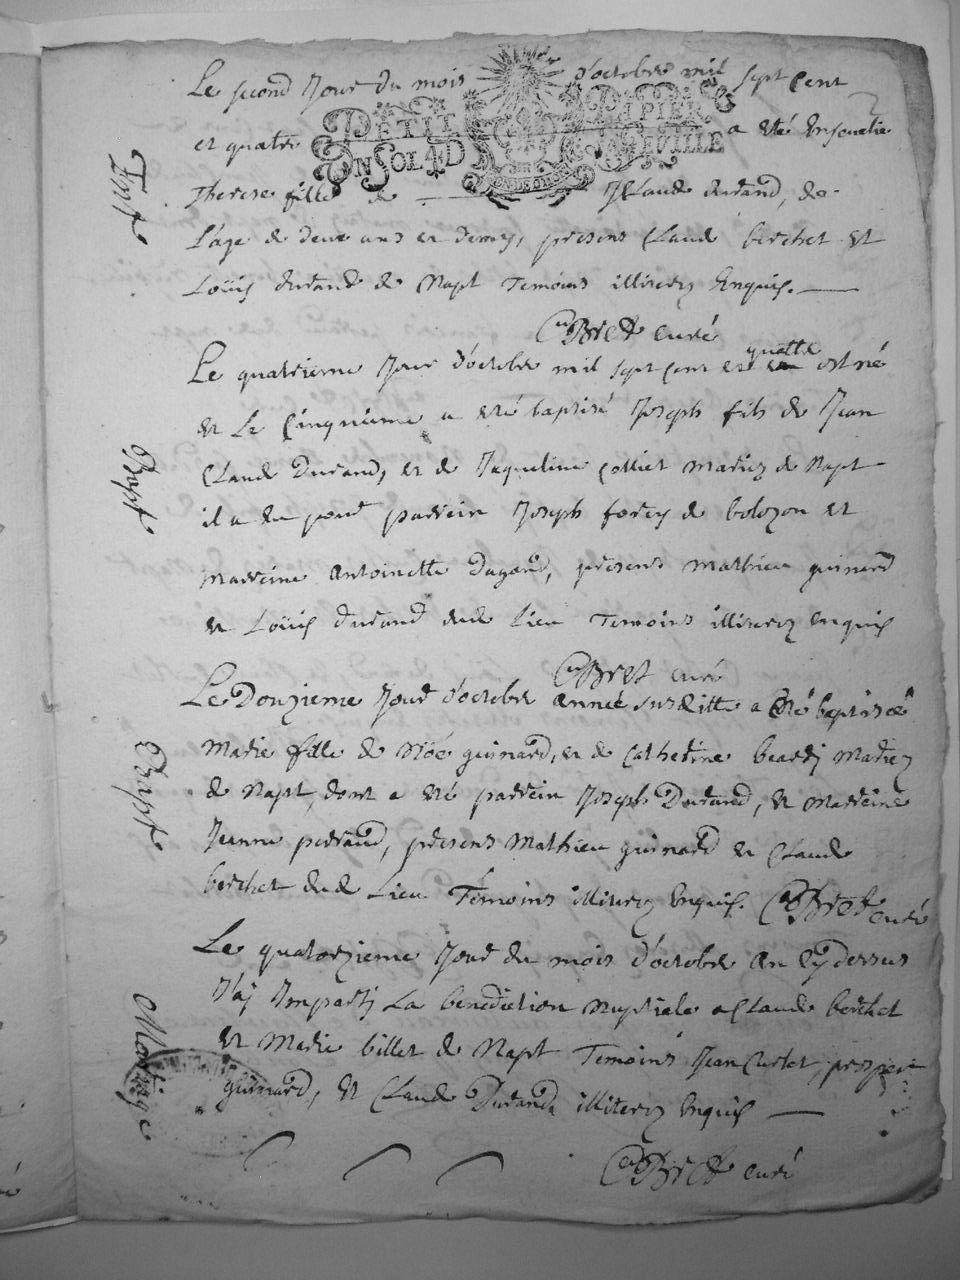 2
Le second Jour du mois d'octobre mil sept cent
et quatre a eté Ensevelie
PETIT PAPIER
UN SOL 4 D
Therese fille de Claude durand, de
L'age de deux ans et demy, presens Claude berchet et
Loüis durand de Napt Temoins illiterez Enquis.
Bret curé
Le quatrieme Jour d'octobre mil sept cent et quattre est né
et Le Cinquieme a eté baptisé Joseph fils de Jean
Claude Durand, et de Jaqueline Colliet mariez de Napt
il a eu pour parrein Joseph forey de bolozon et
marreine antoinette dugond, presens mathieu guinard
et Loüis durand dud Lieu Temoins illiterez enquis
Bret curé
Le Douzieme Jour d'octobre année susditte a eté baptiseé
Marie fille de Noé guinard, et de Catherine beardy Mariez
de Napt, dont a eté parrein Joseph Durand, et Marreine
Jeanne perraud, presens Mathieu guinard et Claude
berchet dud Lieu Temoins illiterez Enquis. Bret curé
Le quatorzieme Jour du mois d'octobre an cy dessus
J'ai Imparti La benediction Nuptiale a Claude berchet
et Marie billet de Napt Temoins Jean Curtet, prosper
guinard, et Claude Durand illiterez Enquis
Bret curé
Bapt
Bapt
Mariage